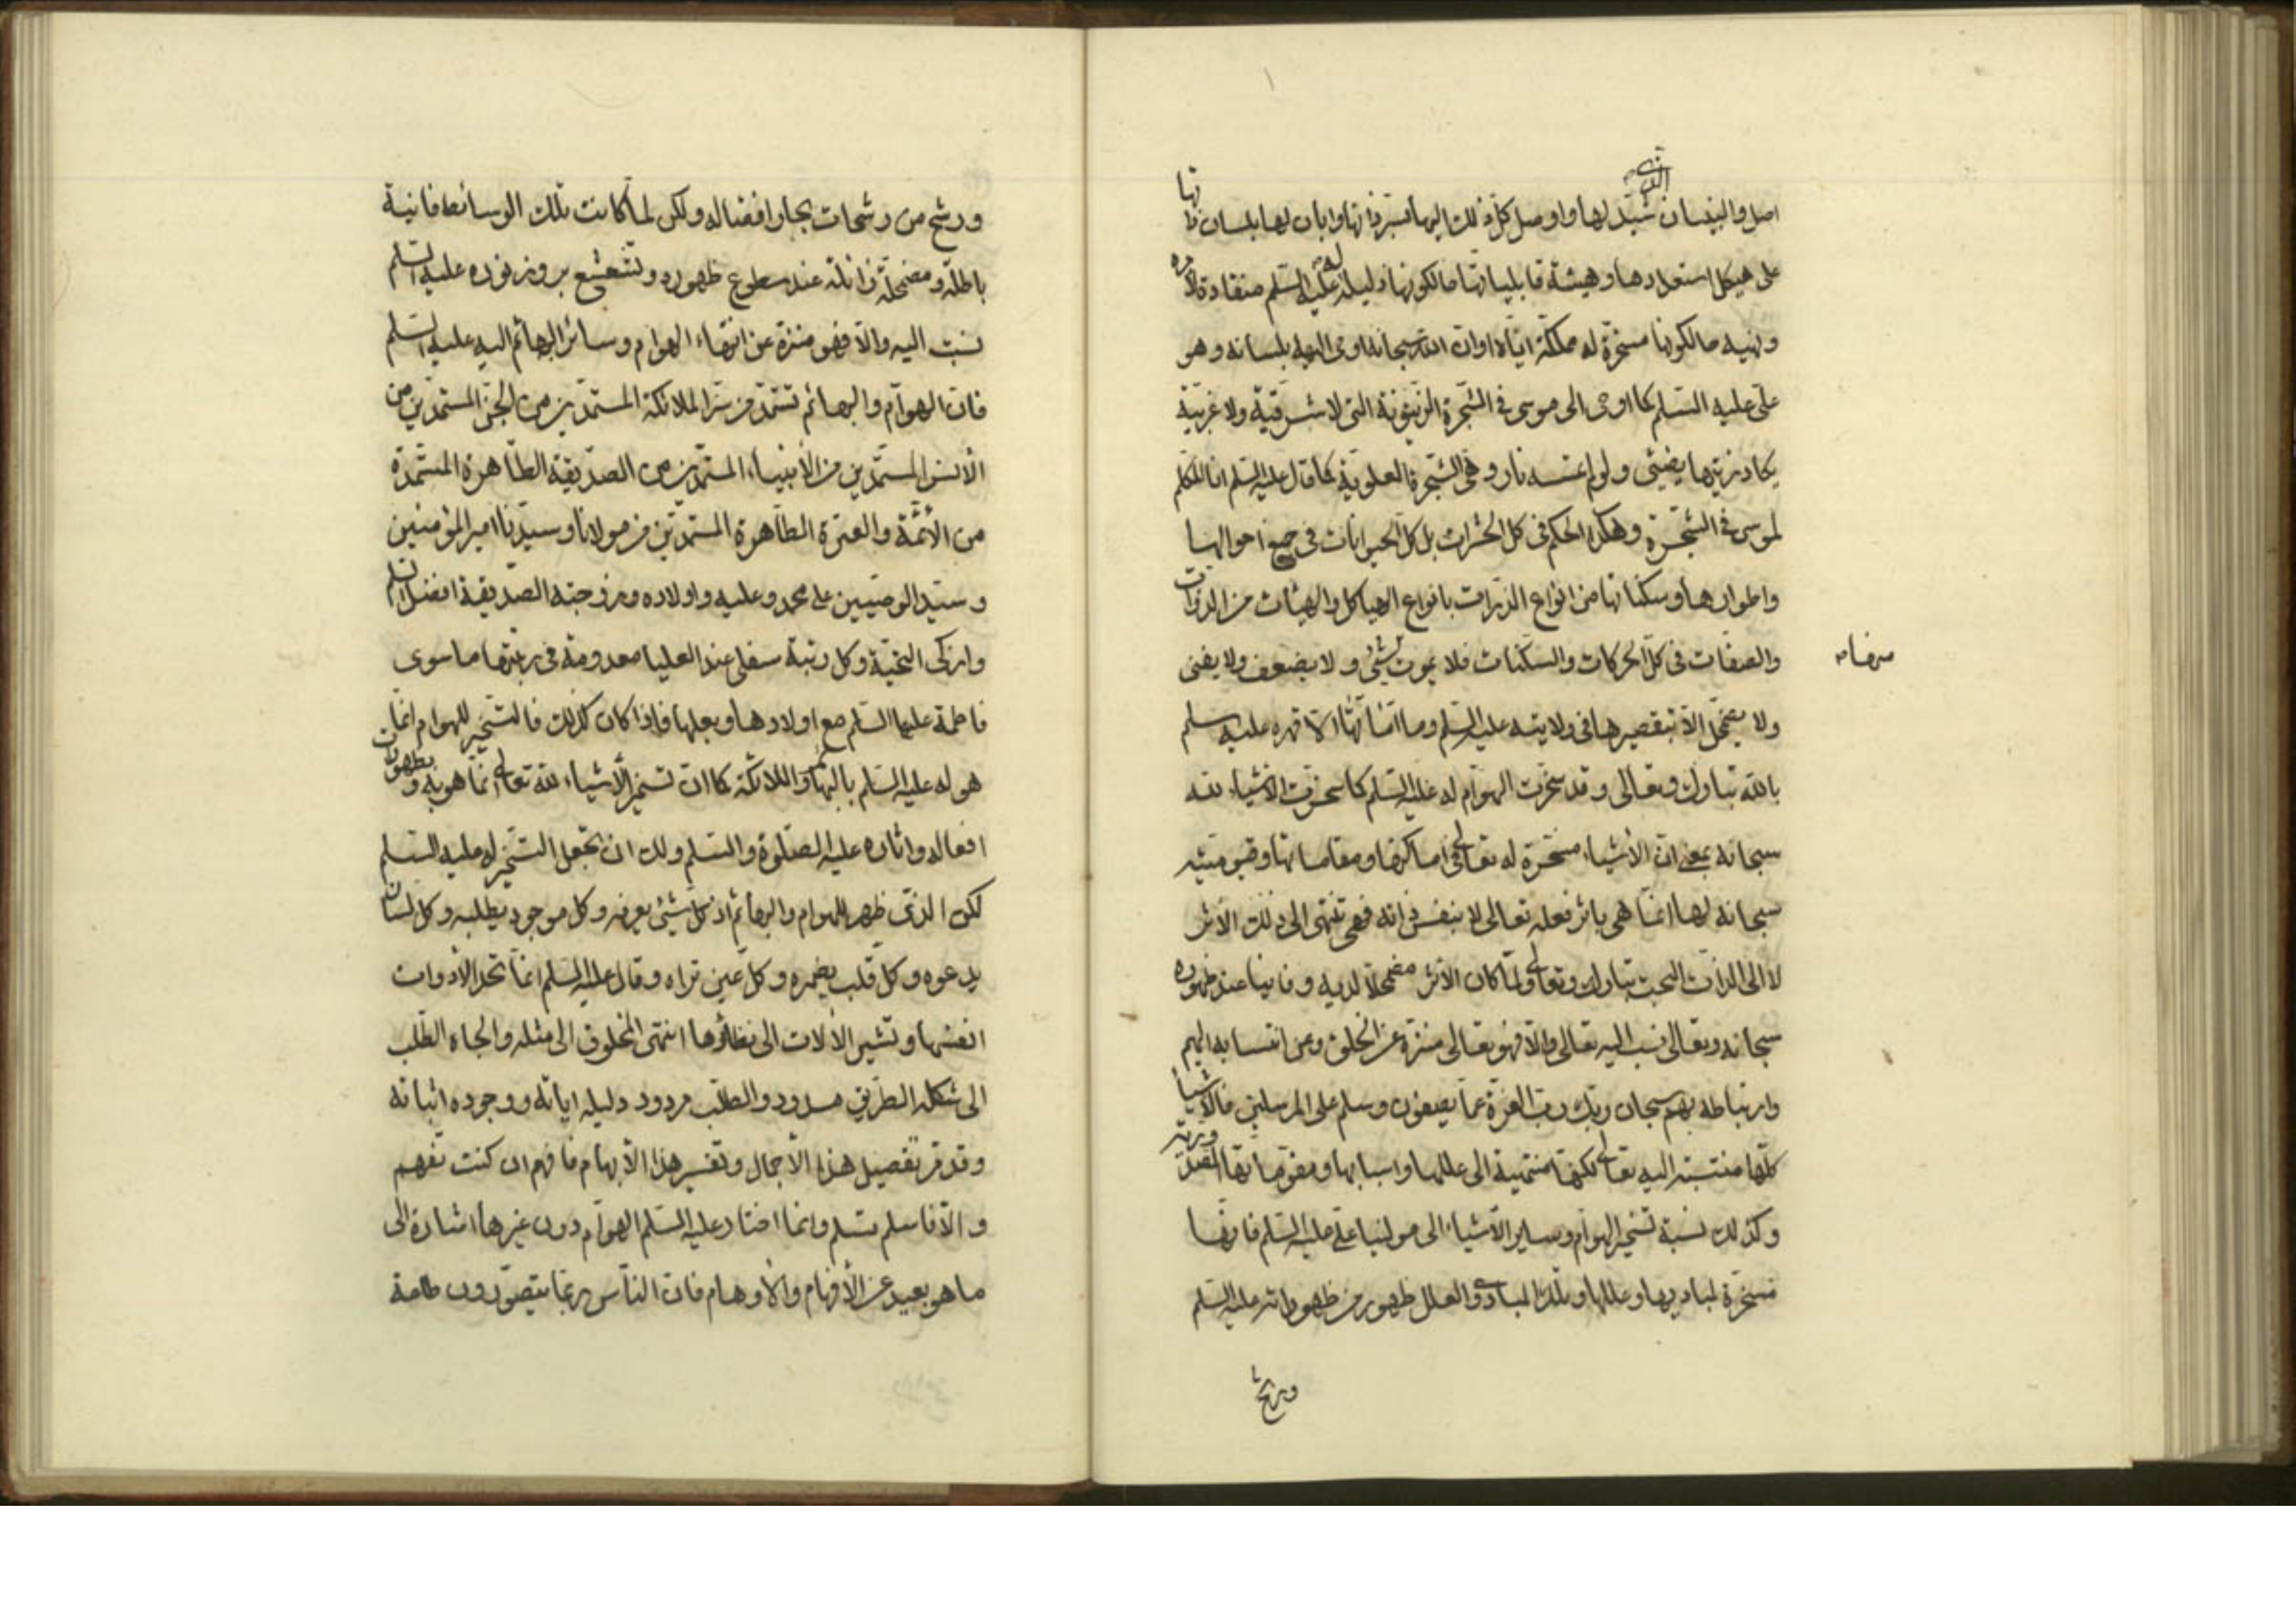 اصل والبنيان شيد لها واوصل كل ذلك اليها بسر ذاتها وابان لها بلسان
على هيكل استعدادها وهيئة قابلياتها مالكونها ذليلة له عليه السلم منقادة لامره
ونهيه مالكونها مسخرة له مملكة اياه اوان الله سبحانه اوحى اليها بلسانه وهو
على عليه السلم كما اوحى الى موسى فى الشجرة الزيتونة التى لا شرقية ولا غربية
يكاد زيتها يضيئ ولو لم تمسسه نار وهى الشجرة العلوية كما قال عليه السلم انا المتكلم
لموسى فى الشجرة وهكذا الحكم فى كل الحشرات بل كل الحيوانات فى جميع احوالها
واطوارها وسكناتها من انواع الذرات بانواع الهياكل والهيئات من الذوات
والصفات فى كل الحركات والسكنات فلا يموت شيئ ولا يضعف ولا يفنى
ولا يضمحل الا بتقصيرها فى ولايته عليه السلم وما امانها الا قهره عليه سلم
بالله تبارك وتعالى وقد سخرت الهوام له عليه السلم كما سخرت الاشياء لله
سبحانه بمعنى ان الأشياء مسخرة له تعالى فى اماكنها ومقاماتها وقيوميته
سبحانه لها انما هى باثر فعله تعالى لا بنفس ذاته فهى تنتهى الى ذلك الأثر
لا الى الذات البحت تبارك وتعالى ولما كان الأثر مضمحلا لديه وفانيا عند ظهوره
سبحانه وتعالى نسب اليه تعالى والا فهو تعالى منزه عن الخلق وعن انتسابه اليهم
وارتباطه بهم سبحان ربك رب العزة عما يصفون وسلم على المرسلين فالاشياء
كلها منتسبة اليه تعالى لكنها منتهية الى عللها واسبابها ومقوماتها
وكذلك نسبة تسخير الهوام وساير الأشياء الى مولينا على عليه السلم فانها
مسخرة لمباديها وعللها وتلك المبادى والعلل ظهور من ظهوراته عليه السلم
ورشح
ورشح من رشحات بحار افضاله ولكن لما كانت تلك الوسائط فانية
باطلة ومضمحلة زائلة عند سطوع ظهوره وتشعشع بروز نوره عليه السلم
نسبت اليه والا فهو منزه عن انتهاء الهوام وسائر البهائم اليه عليه السلم
فان الهوام والبهائم تستمد من سر الملائكة المستمدين من الجن المستمدين من
الأنس المستمدين من الأنبياء المستمدين من الصديقة الطاهرة المستمدة
من الأئمة والعترة الطاهرة المستمدين من مولانا وسيدنا امير المؤمنين
وسيد الوصيين على محمد وعليه واولاده وزوجته الصديقة افضل السلم
وازكى التحية وكل رتبة سفلى عند العليا معدومة فى رتبتها ما سوى
فاطمة عليها السلم مع اولادها وبعلها فاذا كان كذلك فالتسخير للهوام انما
هو له عليه السلم بالبهائم والملائكة كما ان تسخير الأشياء لله تعالى انما هو به وبظهورات
افعاله واثاره عليه الصلوة والسلم ولك ان تجعل التسخير له عليه السلم
لكن الذى ظهر للهوام والبهائم اذ كل شيئ يعرفه وكل موجود يطلبه وكل لسان
يدعوه وكل قلب يضمره وكل عين تراه وقال عليه السلم انما تحد الأدوات
انفسها وتشير الألات الى نظائرها انتهى المخلوق الى مثله والجاه الطلب
الى شكله الطريق مسدود والطلب مردود دليله اياته ووجوده اثباته
وقد مر تفصيل هذا الأجمال وتفسير هذا الأبهام فافهم ان كنت تفهم
والا فاسلم تسلم وانما اختار عليه السلم الهوام دون غيرها اشارة الى
ما هو بعيد عن الأفهام والأوهام فان الناس ربما يتصورون طاعة